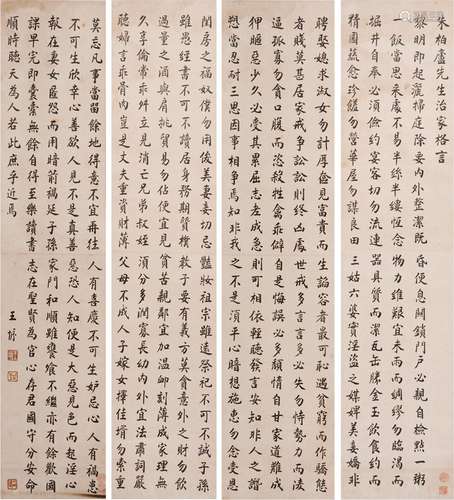 朱柏盧先生治家格言
黎明即起灑掃庭除要內外整潔既昏便息關鎖門戶必親自檢點一粥
一飯當思來處不易半絲半縷恆念物力維艱宜未雨而綢繆勿臨渴而
掘井自奉必須儉約宴客切勿流連器具質而潔瓦缶勝金玉飲食約而
精園蔬愈珍饈勿營華屋勿謀良田三姑六婆實淫盜之媒婢美妾嬌非
聘娶媳求淑女勿計厚奩見富貴而生諂容者最可恥遇貧窮而作驕態
者賤莫甚居家戒爭訟訟則終凶處世戒多言言多必失勿恃勢力而凌
逼孤寡勿貪口腹而恣殺牲禽乖僻自是悔誤必多頹惰自甘家道難成
狎暱惡少久必受其累屈志老成急則可相依輕聽發言安知非人之譖
愬當忍耐三思因事相爭焉知非我之不是須平心暗想施惠勿念受恩
閨房之福奴僕勿用俊美妻妾切忌豔妝祖宗雖遠祭祀不可不誠子孫
雖愚經書不可不讀居身務期質樸教子要有義方莫貪意外之財勿飲
過量之酒與肩挑貿易勿佔便宜見貧苦親鄰宜加溫卹刻薄成家理無
久享倫常乖舛立見消亡兄弟叔姪須分多潤寡長幼內外宜法肅詞嚴
聽婦言乖骨肉豈是丈夫重資財薄父母不成人子嫁女擇佳壻勿索重
莫忘凡事當留餘地得意不宜再往人有喜慶不可生妒忌心人有禍患
不可生欣幸心善欲人見不是真善惡恐人知便是大惡見色而起淫心
報在妻女匿怨而用暗箭禍延子孫家門和順雖饔飧不繼亦有餘歡國
課早完即囊橐無餘自得至樂讀書志在聖賢為官心存君國守分安命
順時聽天為人若此庶乎近焉
王